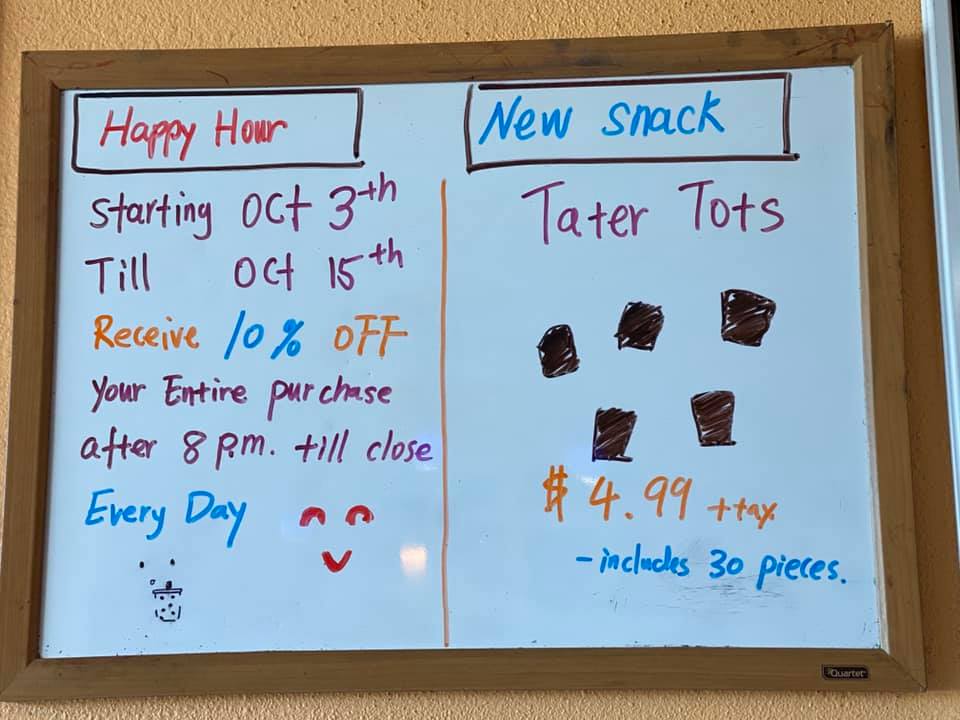 Happy Hour
Starting Oct 3th
Till Oct 15th
Receive 10% OFF
Your Entire purchase
after 8 p.m. till close
Every Day
New snack
Tater Tots
$4.99 +tax
- includes 30 pieces.
Quartet